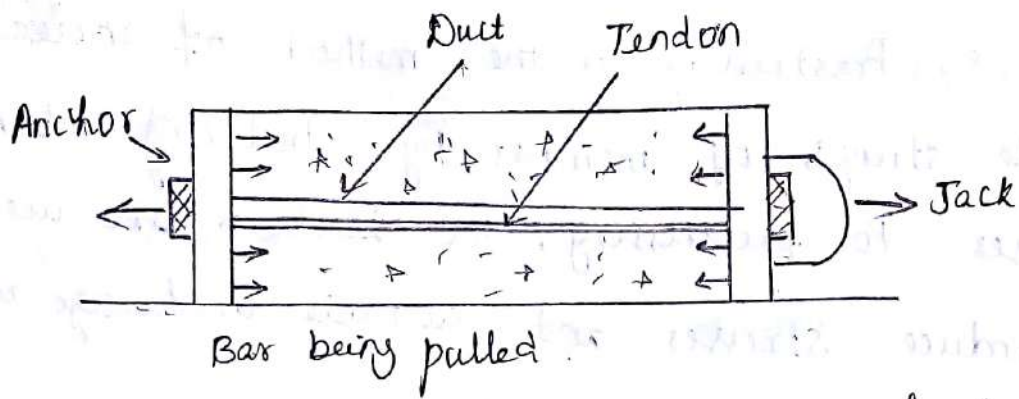 Duct
Tendon
Anchor
Jack
Bar being pulled.